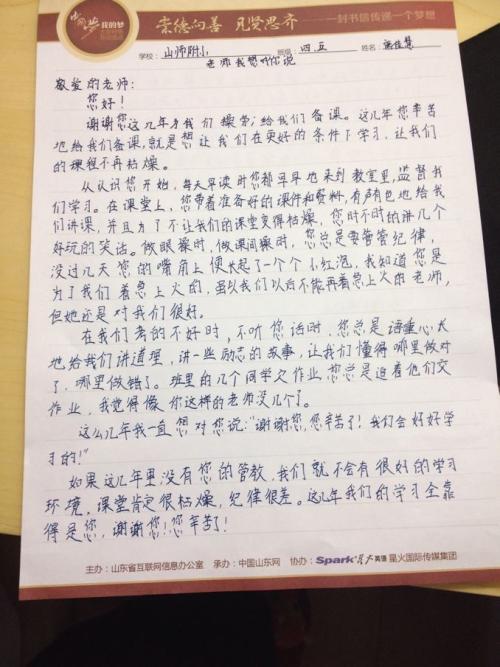 我的梦
崇德向善 见贤思齐 一封书信传递一个梦想
学校：山师附小 班级：四.五 姓名：
老师我想听你说
敬爱的老师：
您好！
谢谢您这几年为我们操劳，给我们备课。这几年您辛苦
地给我们备课，就是想让我们在更好的条件下学习，让我们
的课程不再枯燥。
从认识您开始，每天早读时您都早早地来到教室里，监督我
们学习。在课堂上，您带着准备好的课件和资料，有声有色地给我
们讲课，并且为了不让我们的课堂变得枯燥，您时不时的讲几个
好玩的笑话。做眼操时，做课间操时，您总是要管管纪律，
没过几天您的嘴角上便长起了一个个小红泡，我知道您是
为了我们着急上火的，虽以我们以后不能再着急上火的老师，
但她还是对我们很好。
在我们考的不好时，不听您话时，您总是语重心长
地给我们讲道理，讲一些励志的故事，让我们懂得哪里做对
了，哪里做错了。班里的几个同学欠作业，您总是追着他们交
作业，我觉得像你这样的老师没几个了。
这么几年我一直想对您说："谢谢您，您辛苦了！我们会好好学
习的！"
如果这几年里没有您的管教，我们就不会有很好的学习
环境，课堂肯定很枯燥，纪律很差。这几年我们的学习全靠
得是您，谢谢您！您辛苦了！
主办：山东省互联网信息办公室 承办：中国山东网 协办：Spark 星火英语 星火国际传媒集团